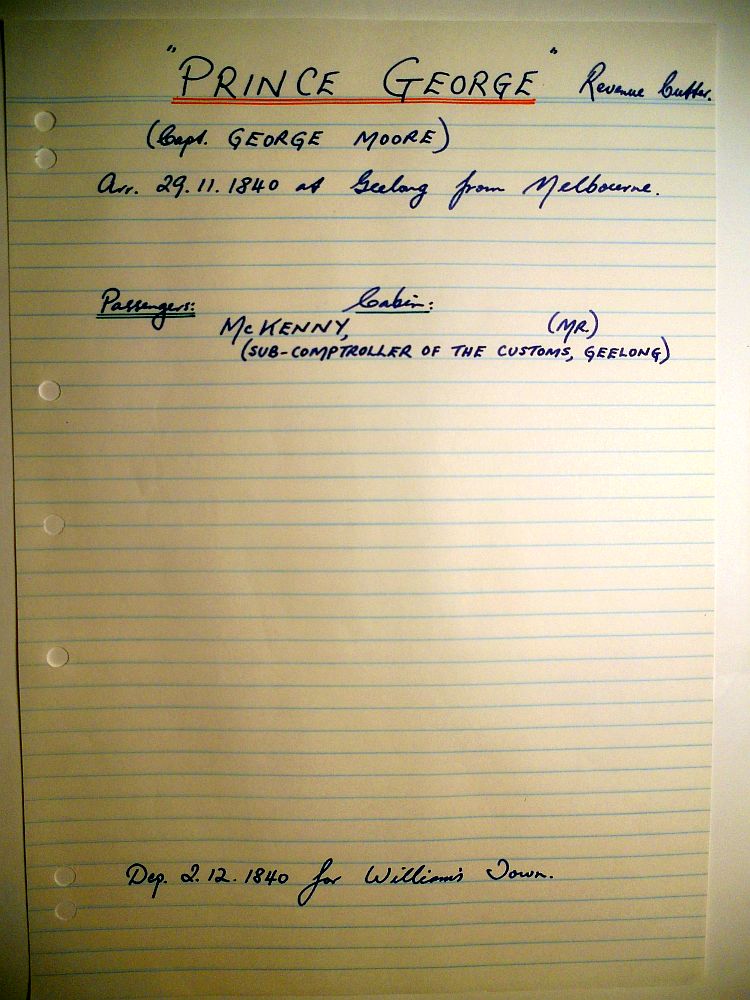 "PRINCE GEORGE" Revenue Cutter.
(Capt. GEORGE MOORE)
Arr. 29.11.1840 at Geelong from Melbourne.
Passengers: Cabin:
McKENNY, (MR.)
(SUB-COMPTROLLER OF THE CUSTOMS, GEELONG)
Dep. 2.12.1840 for William's Town.